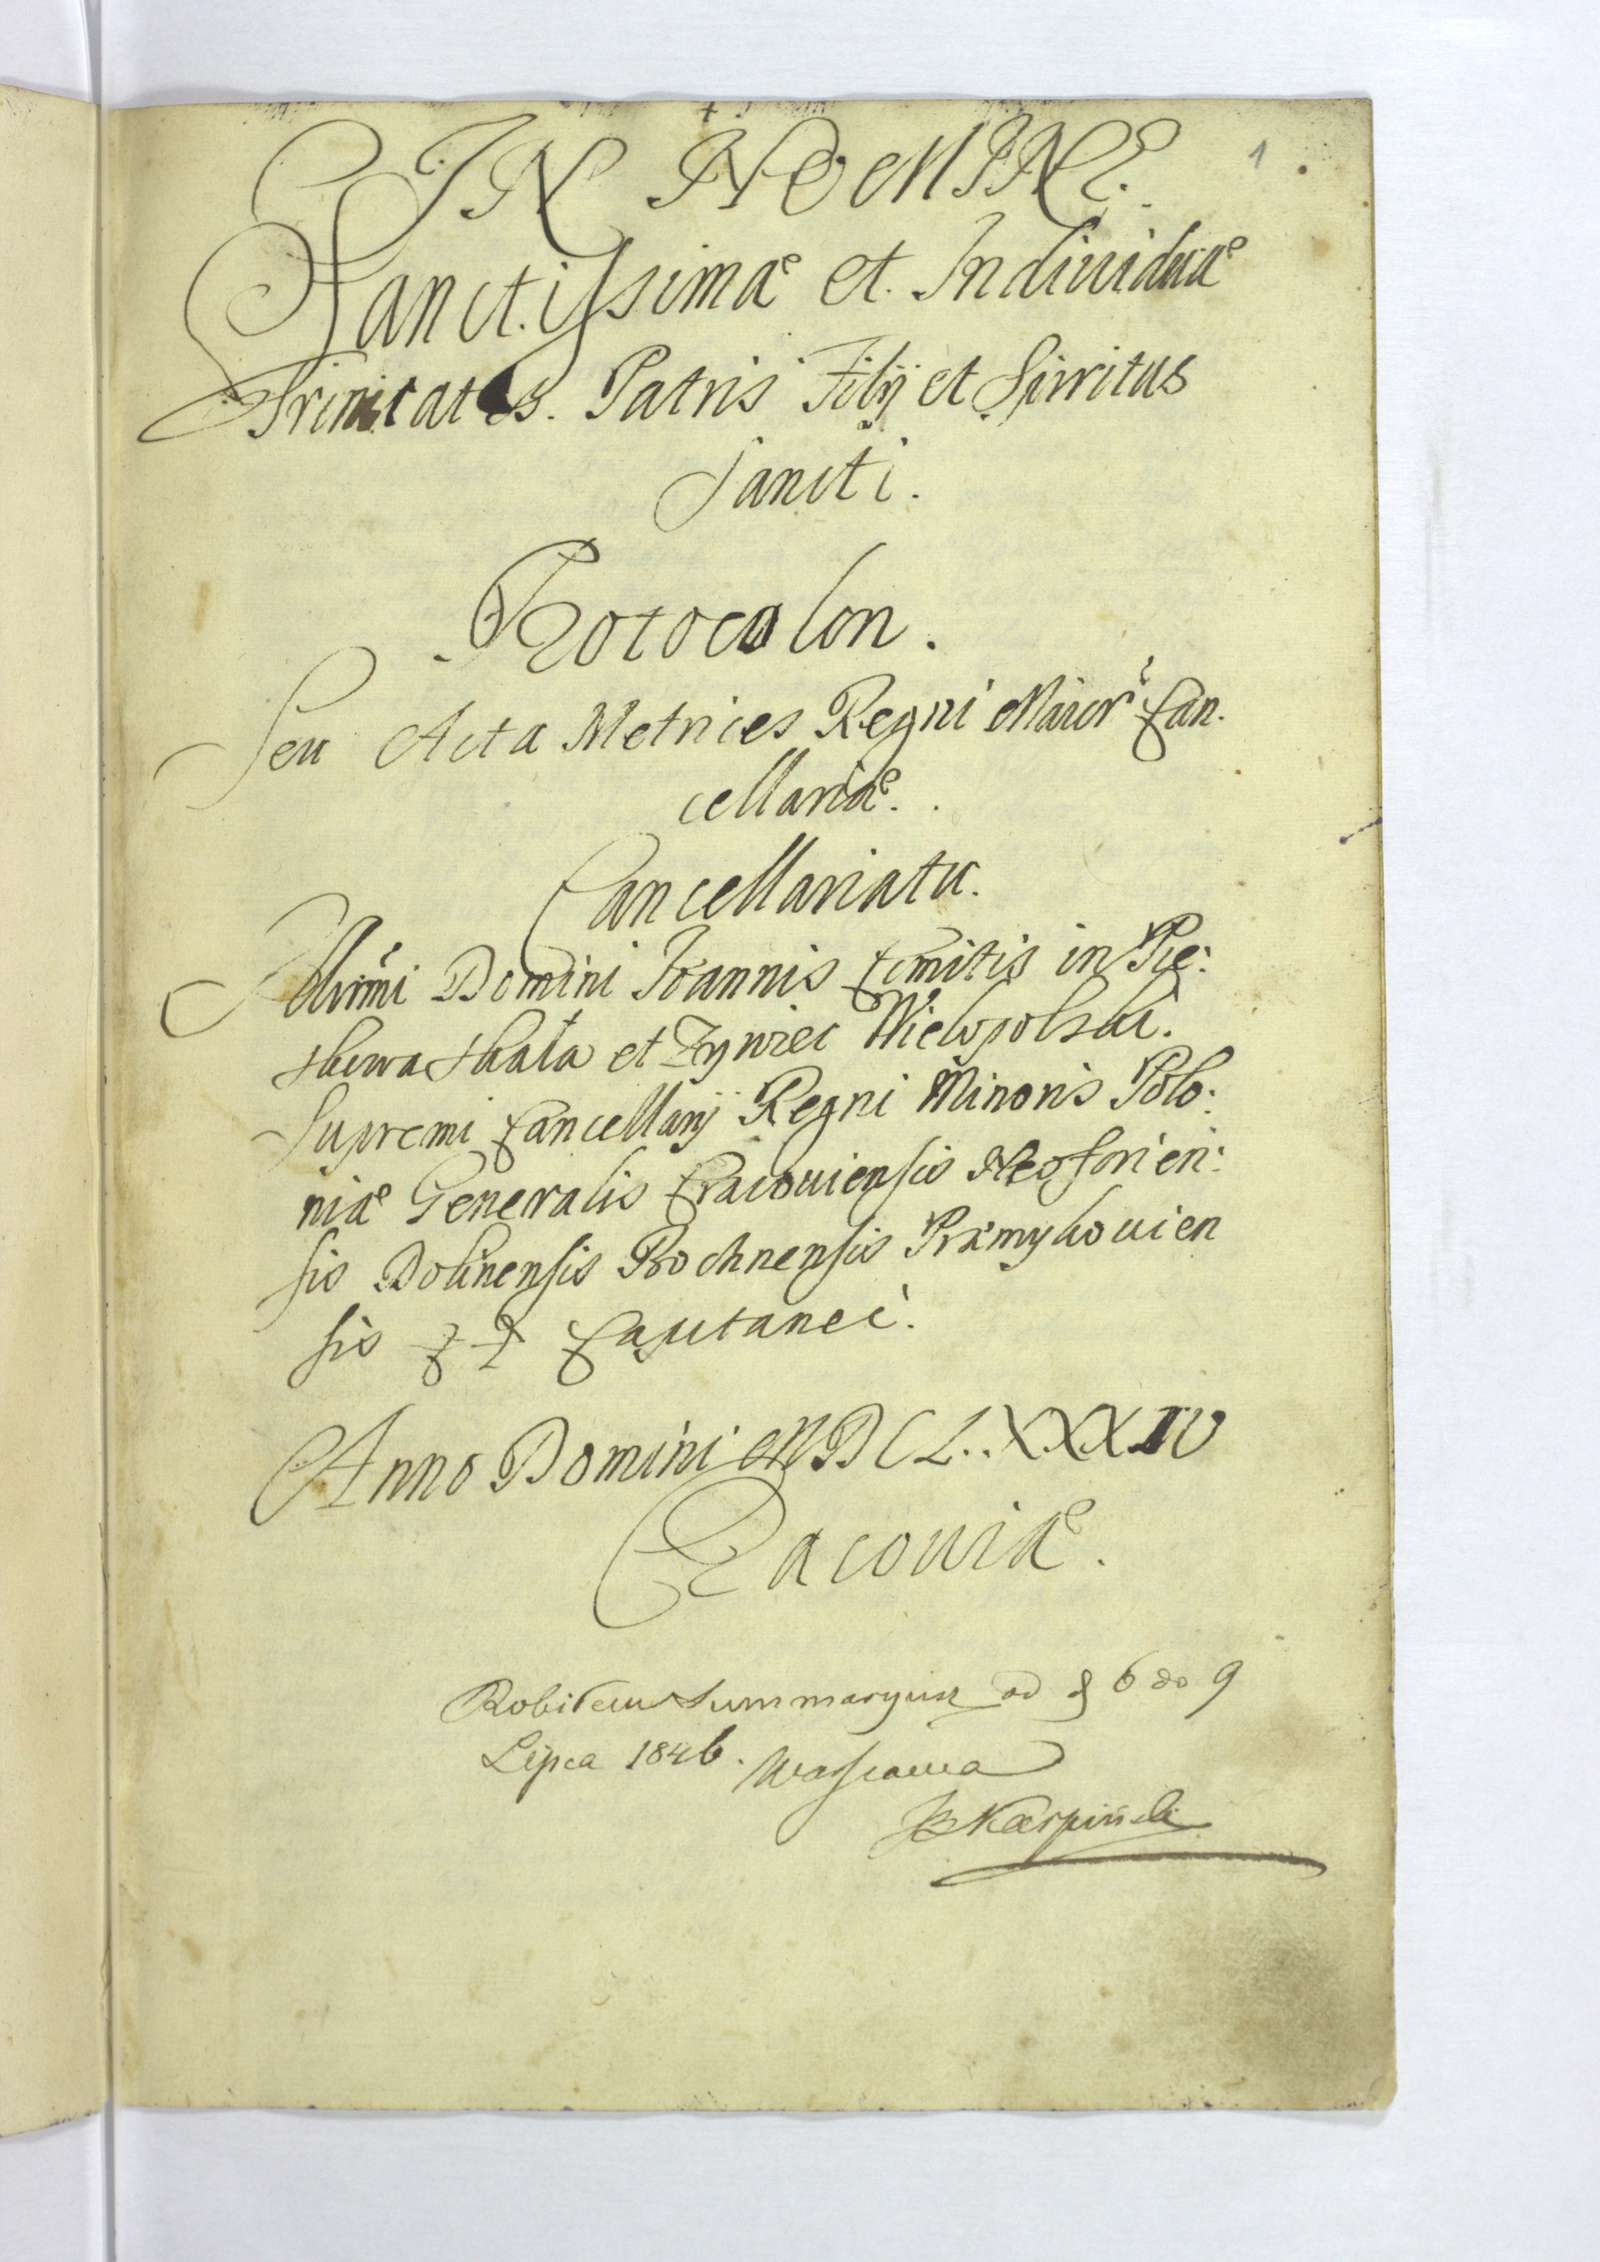 1
IN NOMINE.
Sanctissimæ et Individuæ
Trinitatis. Patris Filij et Spirritus
Sancti.
Protocolon.
Seu Acta Metrices Regni Maior Can.
cellariæ.
Cancellariatu.
Illrmi Domini Joannis Comitis in Pie:
skowa skała et Zywiec Wielopolski.
Supremi Cancellarij Regni Minoris Polo:
niæ Generalis Cracouiensis Neoforien:
sis Dolinensis Bochnensis
sis Capitanei.
Anno Domini MDCLXXXIV
Cracouiæ.
Robiłem Summaryusz od d 6 do 9
Lipca 1846. Warszawa
Karpiński